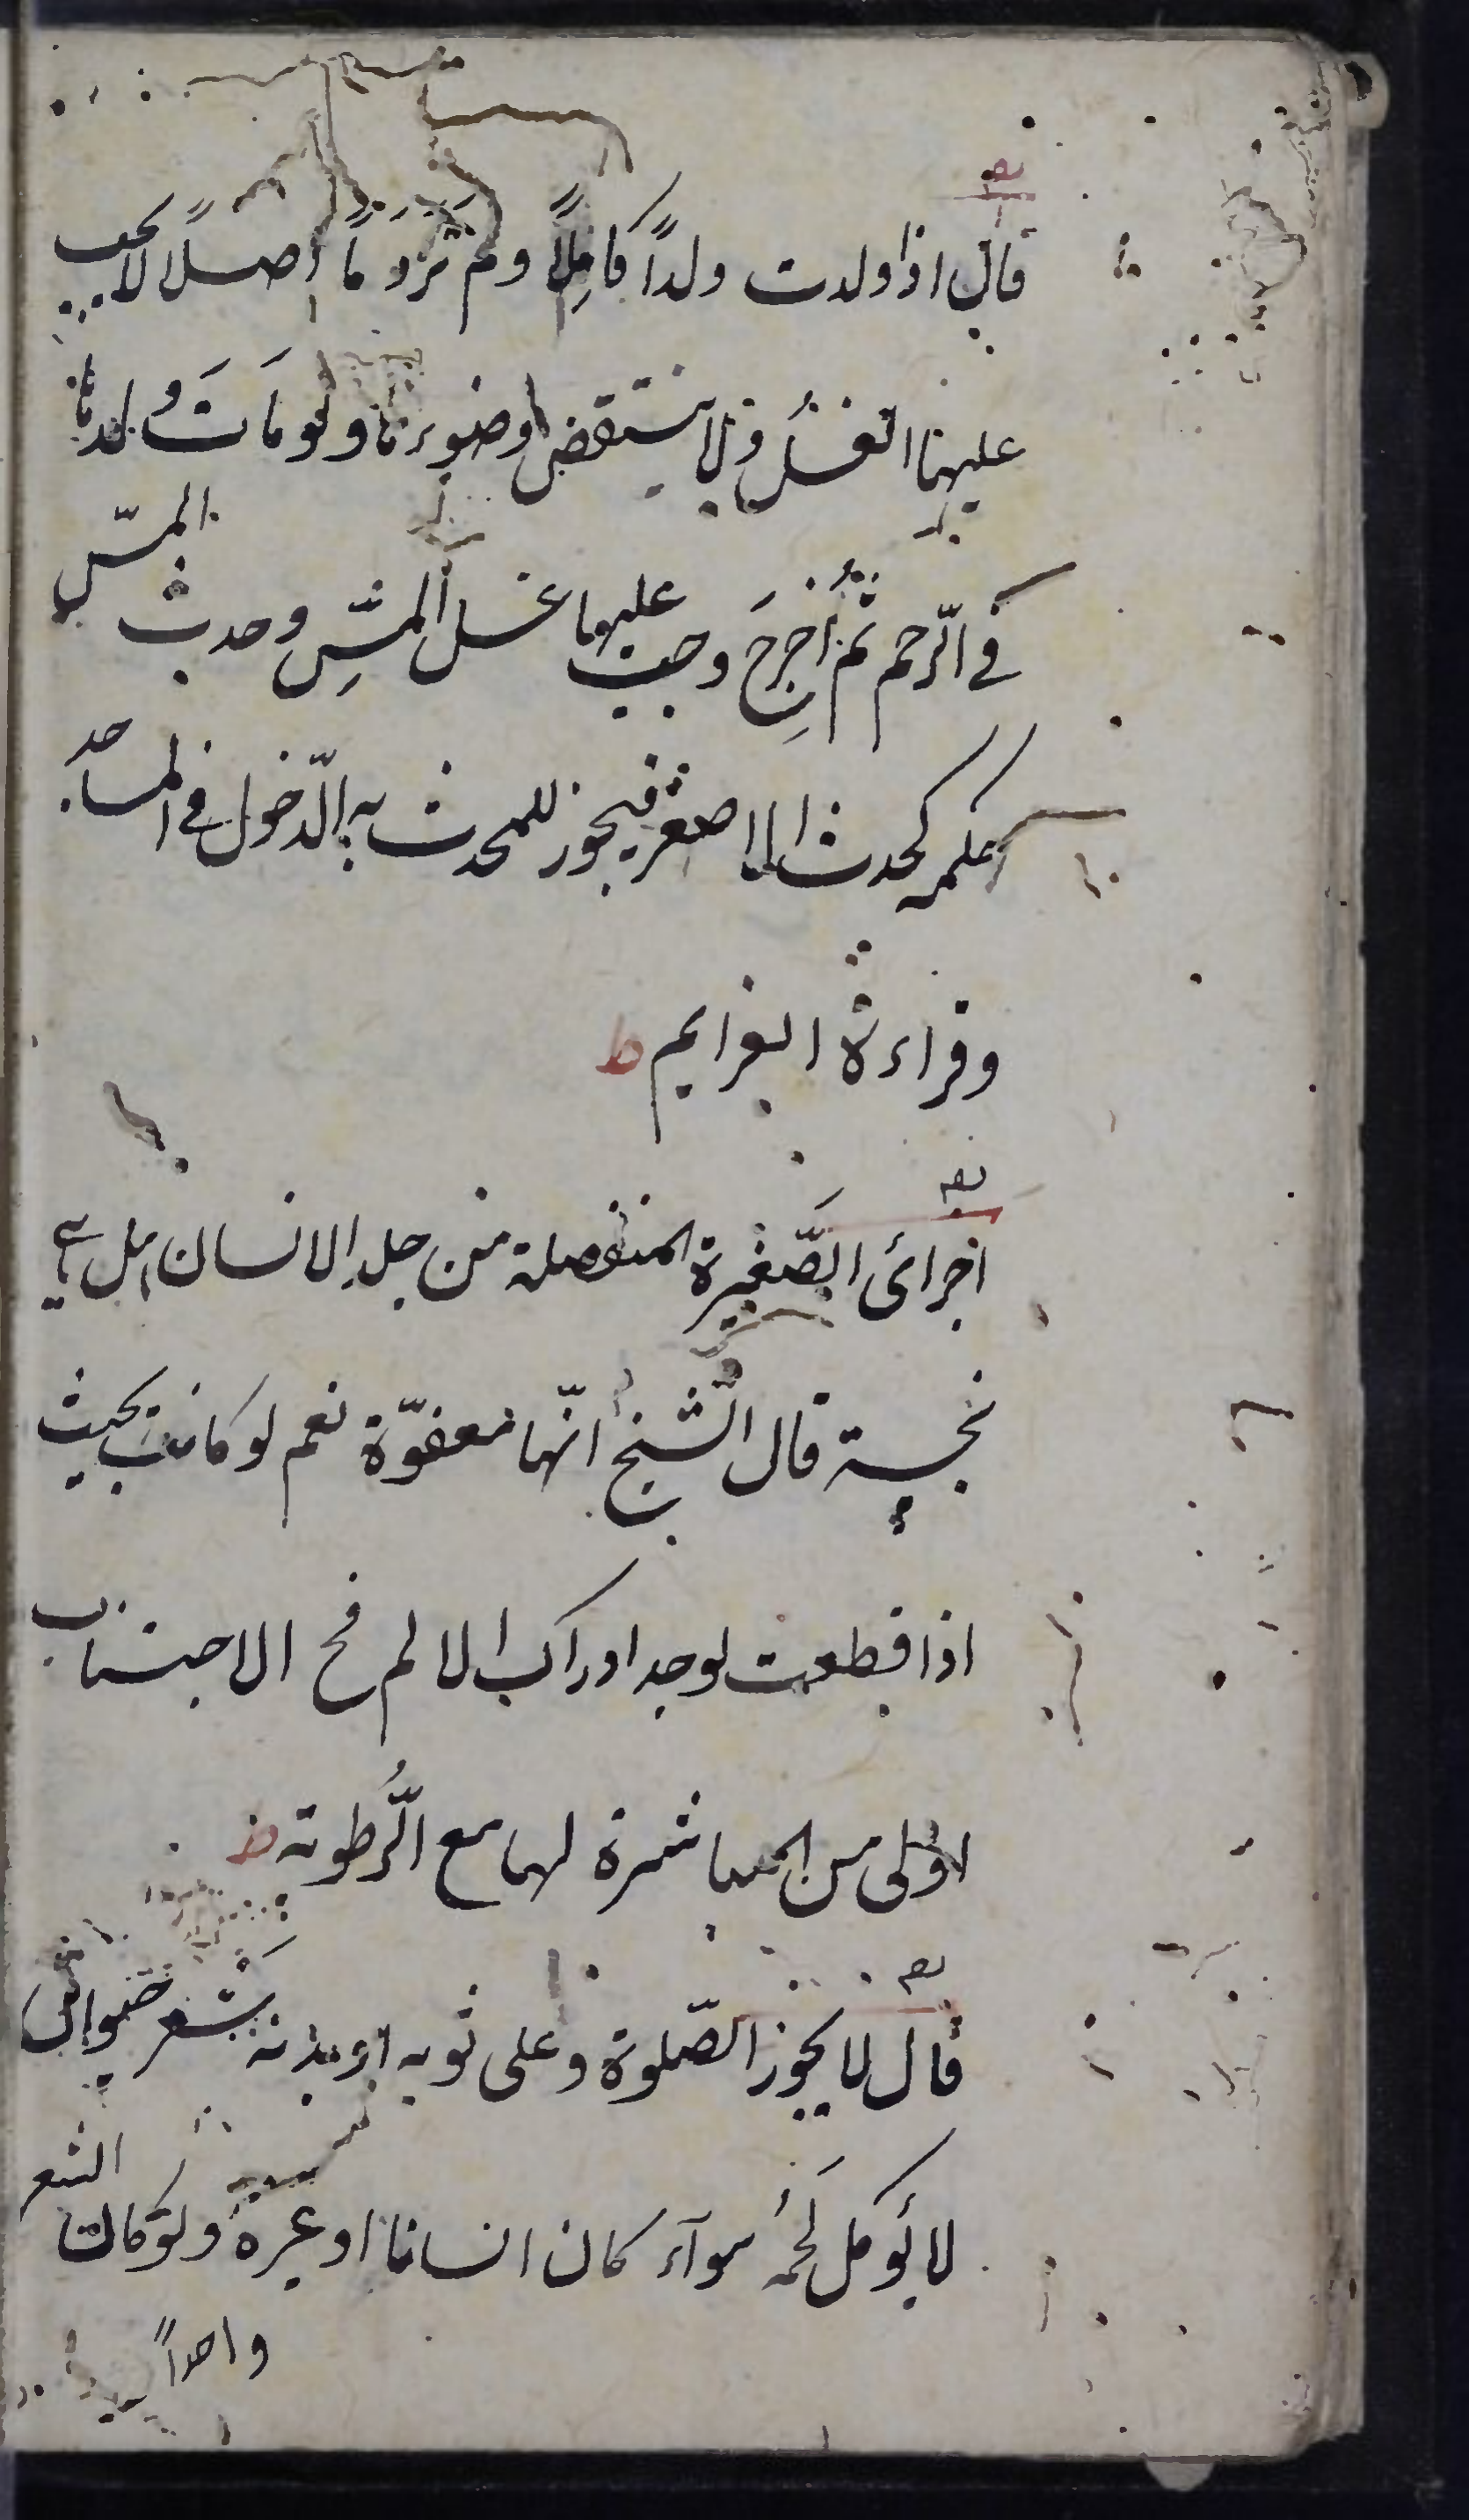 قال اذا ولدت ولداً كاملاً ولم تر دماً اصلاً لا يجب
عليها الغسل ولا ينتقض وضوءها ولو مات ولدها
في الرّحم ثم اُخرج وجب عليها غسل المسّ وحدث المسّ
حكمه كحدث الاصغر فيجوز للمحدث به الدّخول في المساجد
وقراءة العزايم ط
اجزائ الصّغيرة المنفصلة من جلد الانسان هل هي
نجسة قال الشيخ انّها معفوّة نعم لو كانت بحيث
اذا قطعت لوجد ادراك الالم فح الاجتناب
اولى من المباشرة لها مع الرّطوبة ط
قال لا يجوز الصّلوة وعلى ثوبه او بدنه شعر حيوان
لا يؤكل لحمه سوآء كان انسانا او غيره ولو كان الشعر
واحداً